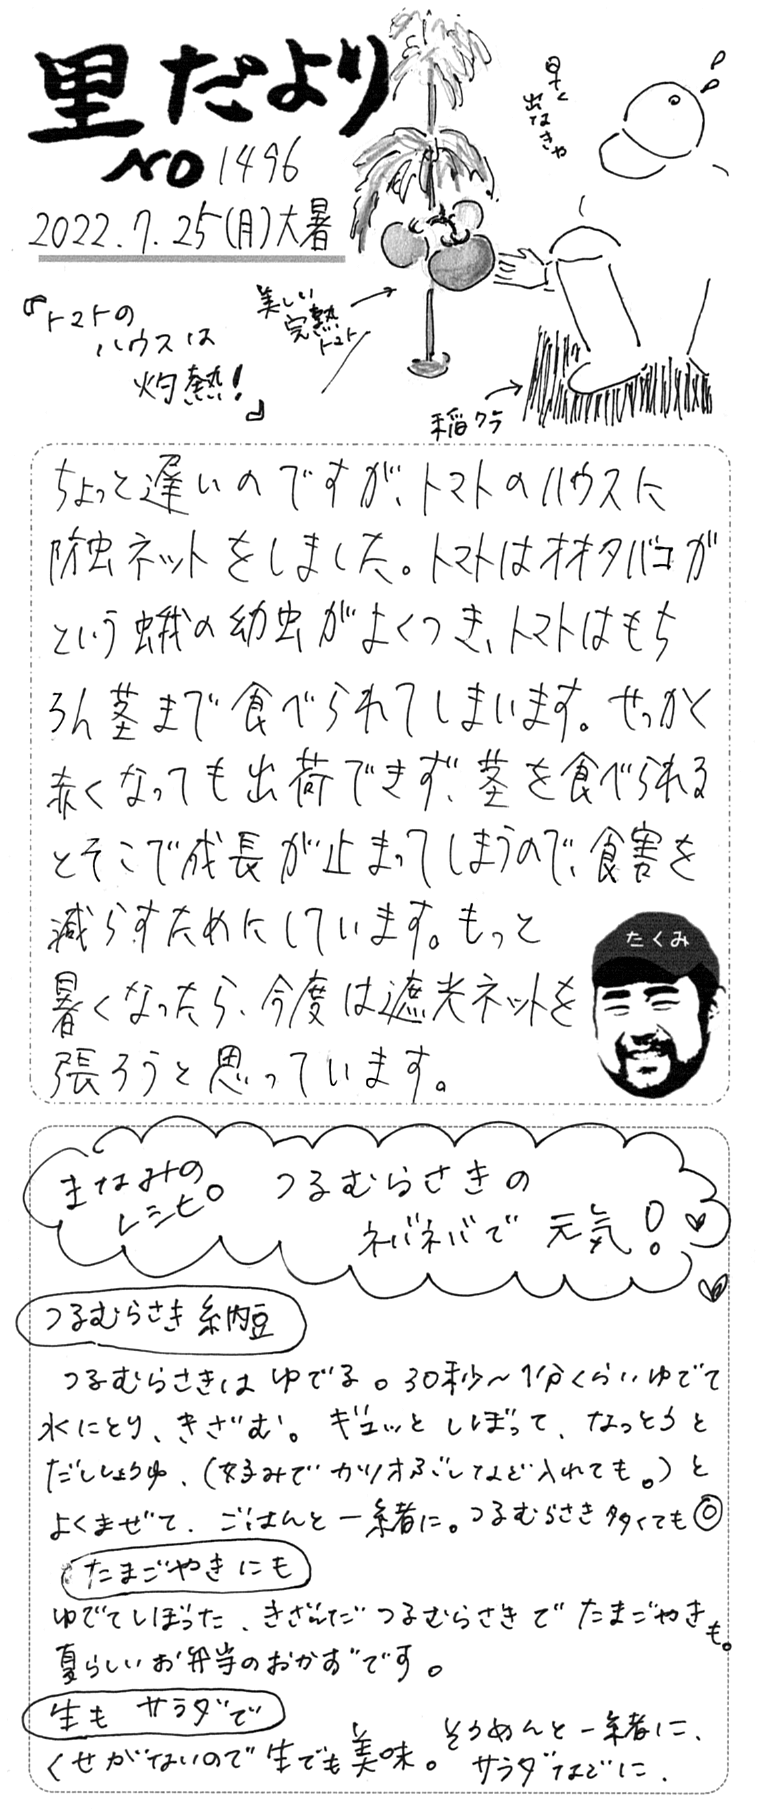 里だより
NO 1496
2022.7.25(月)大暑
早く
出なきゃ
『トマトの
ハウスは
灼熱!』
美しい
完熟
トマト
稲ワラ
ちょっと遅いのですが、トマトのハウスに
防虫ネットをしました。トマトはオオタバコガ
という蛾の幼虫がよくつき、トマトはもち
ろん茎まで食べられてしまいます。せっかく
赤くなっても出荷できず、茎を食べられる
とそこで成長が止まってしまうので、食害を
減らすためにしています。もっと
暑くなったら、今度は遮光ネットを
張ろうと思っています。
たくみ
まなみの
レシピ。
つるむらさきの
ネバネバで 元気!
つるむらさき納豆
つるむらさきは ゆでる。30秒〜1分くらいゆでて
水にとり、きざむ。ギュッと しぼって、なっとうと
だししょうゆ、(好みで カツオぶしなど入れても。)と
よくまぜて、ごはんと一緒に。つるむらさき多くても◎
たまごやきにも
ゆでてしぼった、きざんだ つるむらさきで たまごやきも。
夏らしいお弁当のおかずです。
生も サラダで
くせがないので生でも美味。そうめんと一緒に、
サラダなどに、